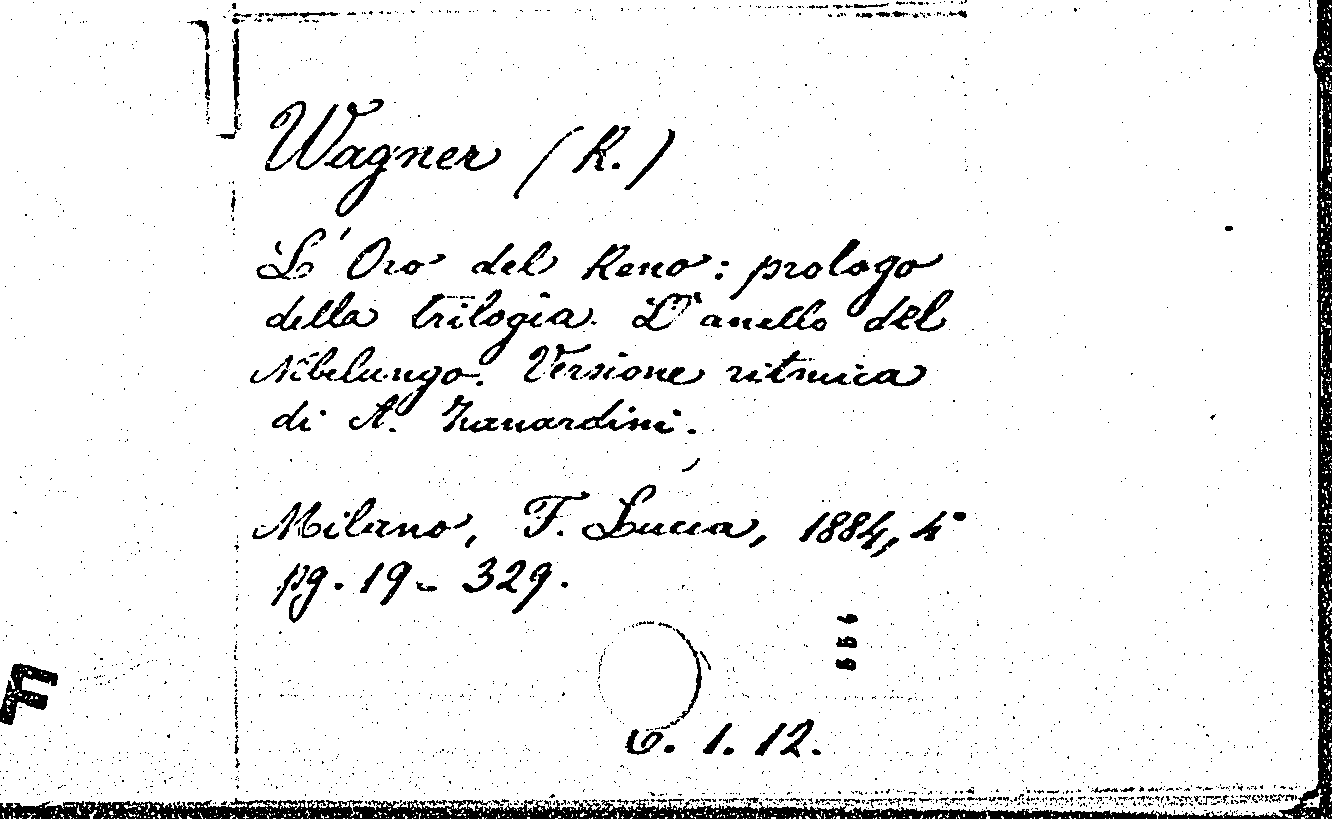 Wagner (R.)
L'Oro del Reno: prologo
della trilogia. L'anello del
Nibelungo. Versione ritmica
di A. Zanardini.
Milano, F. Lucca, 1884, 4°
pg. 19 - 329.
1. 12.
F